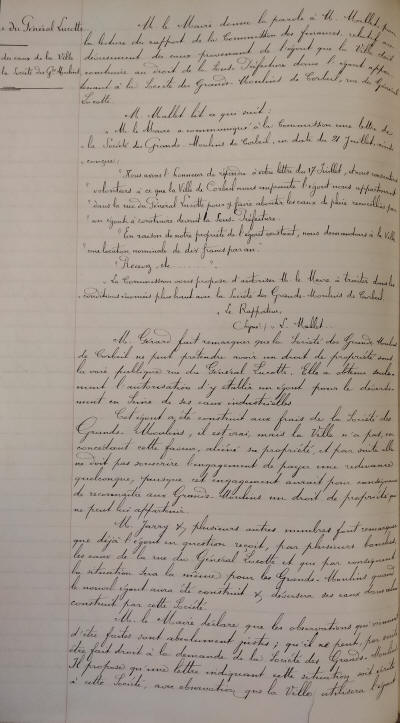 du Général Lucotte
des eaux de la Ville
la Société des Gds Moulins
M. le Maire donne la parole à M. Mallet pour
la lecture du rapport de la Commission des finances, relatif au
déversement des eaux provenant de l'égout que la Ville doit
construire au droit de la Sous-Préfecture dans l'égout appar-
tenant à la Société des Grands-Moulins de Corbeil, rue du Général
Lucotte.
M. Mallet lit ce qui suit :
" M. le Maire a communiqué à la Commission une lettre de
" la Société des Grands-Moulins de Corbeil, en date du 21 Juillet, ainsi
conçue :
" Nous avons l'honneur de répondre à votre lettre du 17 Juillet, et nous consentons
" volontiers à ce que la Ville de Corbeil nous emprunte l'égout nous appartenant
" dans la rue du Général Lucotte pour y faire aboutir les eaux de pluie recueillies par
" un égout à construire devant la Sous-Préfecture.
" En raison de notre propriété de l'égout existant, nous demandons à la Ville
" une location nominale de dix francs par an.
" Recevez, etc .......... ".
" La Commission vous propose d'autoriser M. le Maire à traiter dans les
" conditions énoncées plus haut avec la Société des Grands-Moulins de Corbeil.
" Le Rapporteur,
Signé : " L. Mallet.
M. Girard fait remarquer que la Société des Grands Moulins
de Corbeil ne peut prétendre avoir un droit de propriété sous
la voie publique rue du Général Lucotte. Elle a obtenu seule-
ment l'autorisation d'y établir un égout pour le déverse-
ment en Seine de ses eaux industrielles.
Cet égout a été construit aux frais de la Société des
Grands-Moulins, il est vrai, mais la Ville n'a pas, en
concédant cette faveur, aliéné sa propriété, et par suite elle
ne doit pas souscrire l'engagement de payer une redevance
quelconque, puisque cet engagement aurait pour conséquence
de reconnaître aux Grands-Moulins un droit de propriété qui
ne peut lui appartenir.
M. Jarry &, plusieurs autres membres font remarquer
que déjà l'égout en question reçoit, par plusieurs bouches,
les eaux de la rue du Général Lucotte et que par conséquent
la situation sera la même pour les Grands-Moulins quand
le nouvel égout aura été construit &, déversera ses eaux dans celui
construit par cette Société.
M. le Maire déclare que les observations qui viennent
d'être faites sont absolument justes ; qu'il ne peut, par suite
être fait droit à la demande de la Société des Grands-Moulins.
Il propose qu'une lettre indiquant cette situation, soit écrite
à cette Société, avec observation que la Ville utilisera l'égout